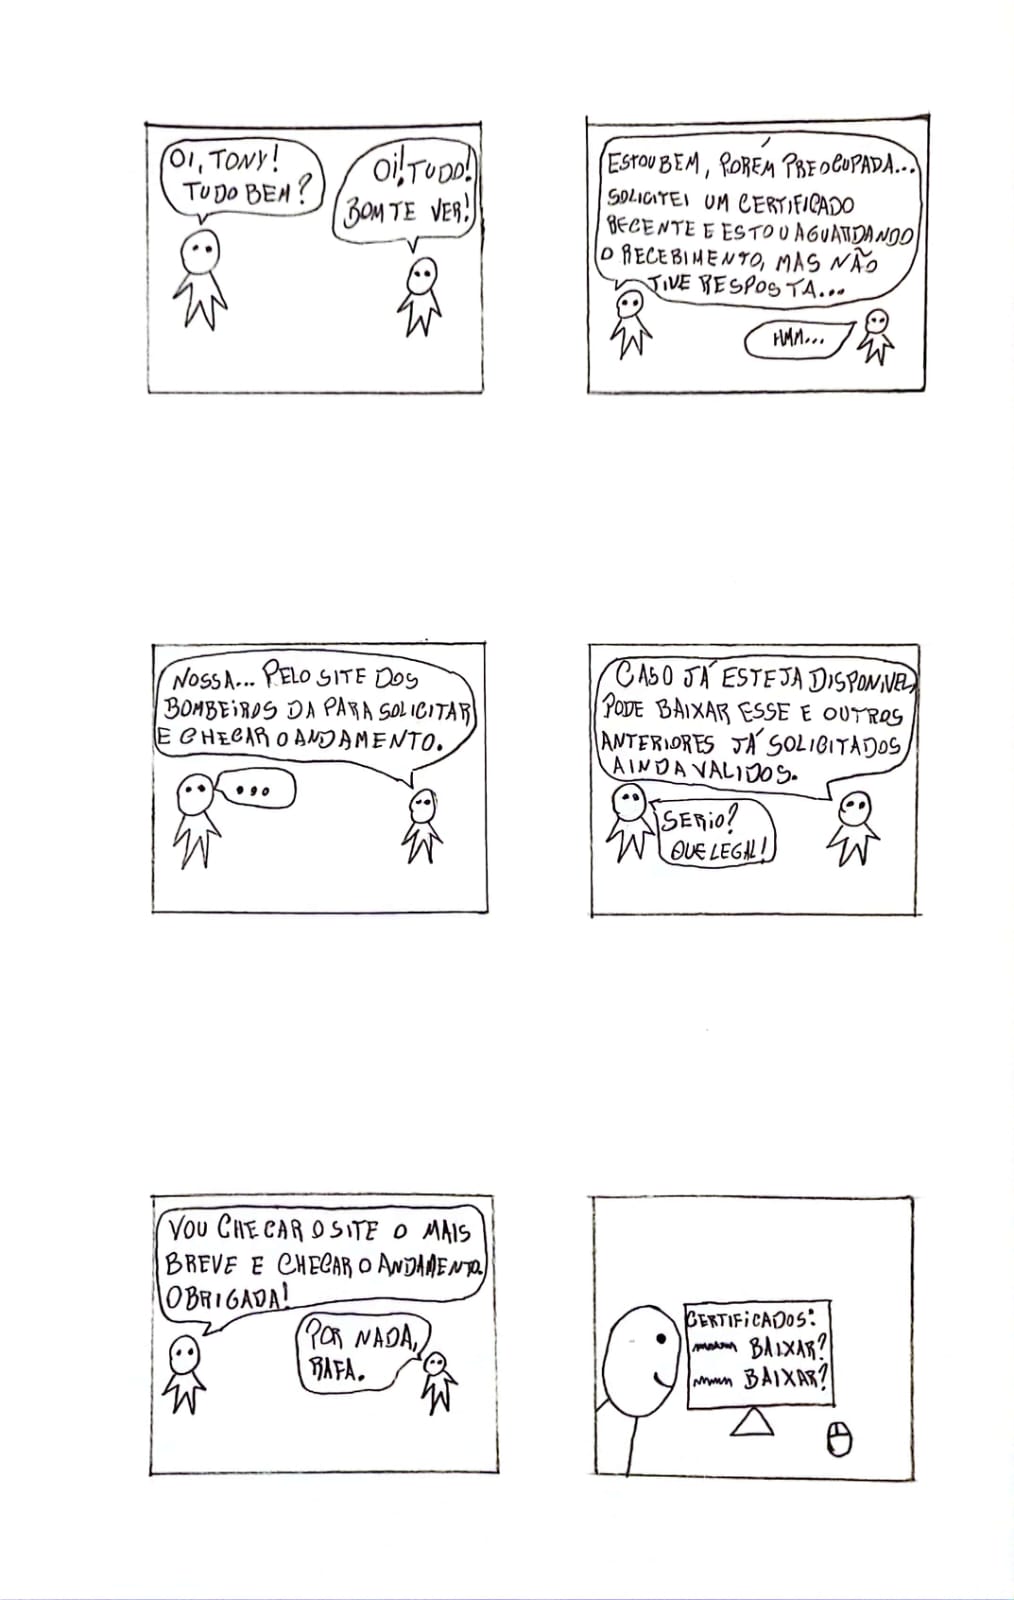 OI, TONY!
TUDO BEM?
OI! TUDO!
BOM TE VER!
ESTOU BEM, PORÉM PREOCUPADA...
SOLICITEI UM CERTIFICADO
RECENTE E ESTOU AGUARDANDO
O RECEBIMENTO, MAS NÃO
TIVE RESPOSTA...
HMM...
NOSSA... PELO SITE DOS
BOMBEIROS DA PARA SOLICITAR
E CHECAR O ANDAMENTO.
...
CASO JÁ ESTEJA DISPONIVEL,
PODE BAIXAR ESSE E OUTROS
ANTERIORES JÁ SOLICITADOS
AINDA VALIDOS.
SERIO?
QUE LEGAL!
VOU CHECAR O SITE O MAIS
BREVE E CHECAR O ANDAMENTO.
OBRIGADA!
POR NADA,
RAFA.
CERTIFICADOS:
BAIXAR?
BAIXAR?